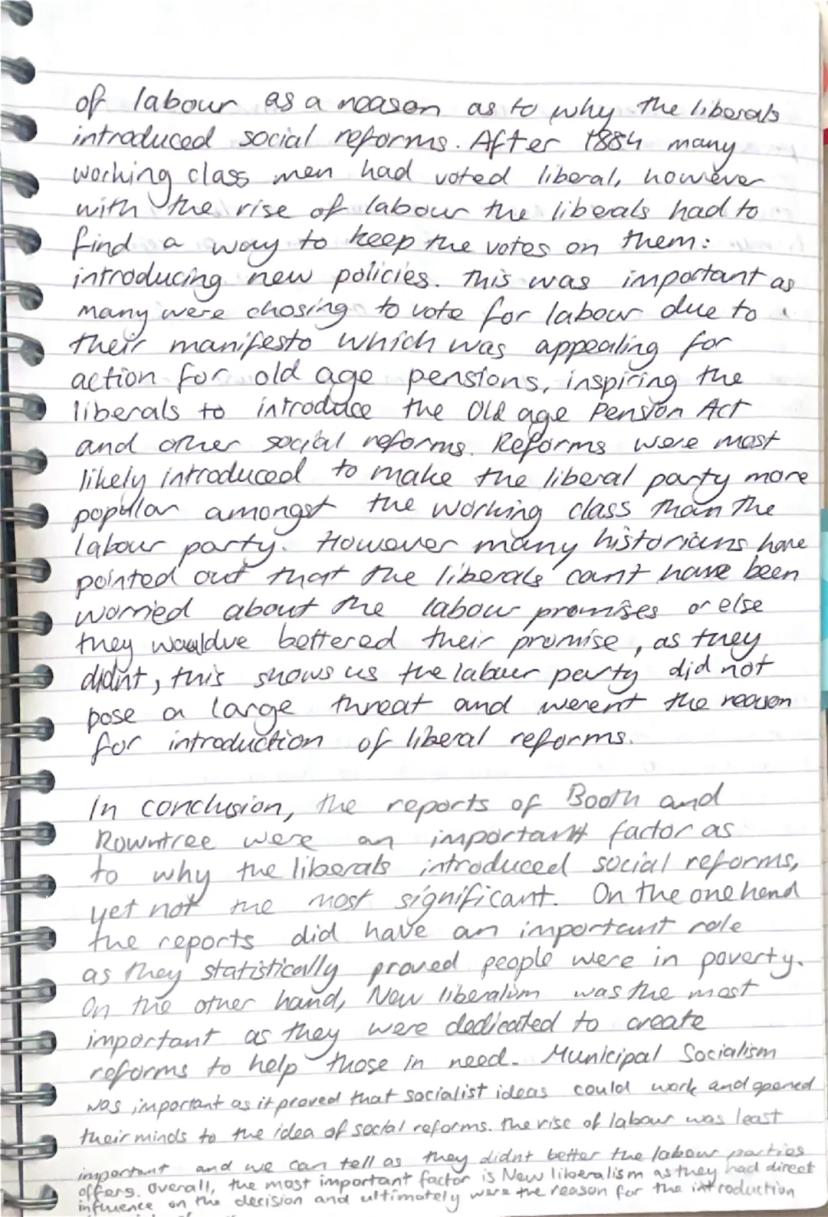 of labour as a reason as to why the liberals
introduced social reforms. After 1884 many
working class men had voted liberal, however
with the rise of labour the liberals had to
find a way to keep the votes on them:
introducing new policies. This was important as
many were chosing to vote for labour due to
their manifesto which was appealing for
action for old age pensions, inspiring the
liberals to introduce the Old age Pension Act
and other social reforms. Reforms were most
likely introduced to make the liberal party more
popular amongst the working class than the
labour party. However many historians have
pointed out that the liberals can't have been
worried about the labour promises or else
they wouldve bettered their promise, as they
didnt, this shows us the labour party did not
pose a large threat and werent the reason
for introduction of liberal reforms.
In conclusion, the reports of Booth and
Rowntree were an important factor as
to why the liberals introduced social reforms,
yet not the most significant. On the one hand
the reports did have an important role
as they statistically proved people were in poverty.
On the other hand, New liberalism was the most
important as they were dedicated to create
reforms to help those in need. Municipal Socialism
was important as it proved that socialist ideas could work and opened
their minds to the idea of social reforms. the rise of labour was least
important and we can tell as they didnt better the labour parties
offers. Overall, the most important factor is New liberalism as they had direct
influence on the decision and ultimately were the reason for the introduction